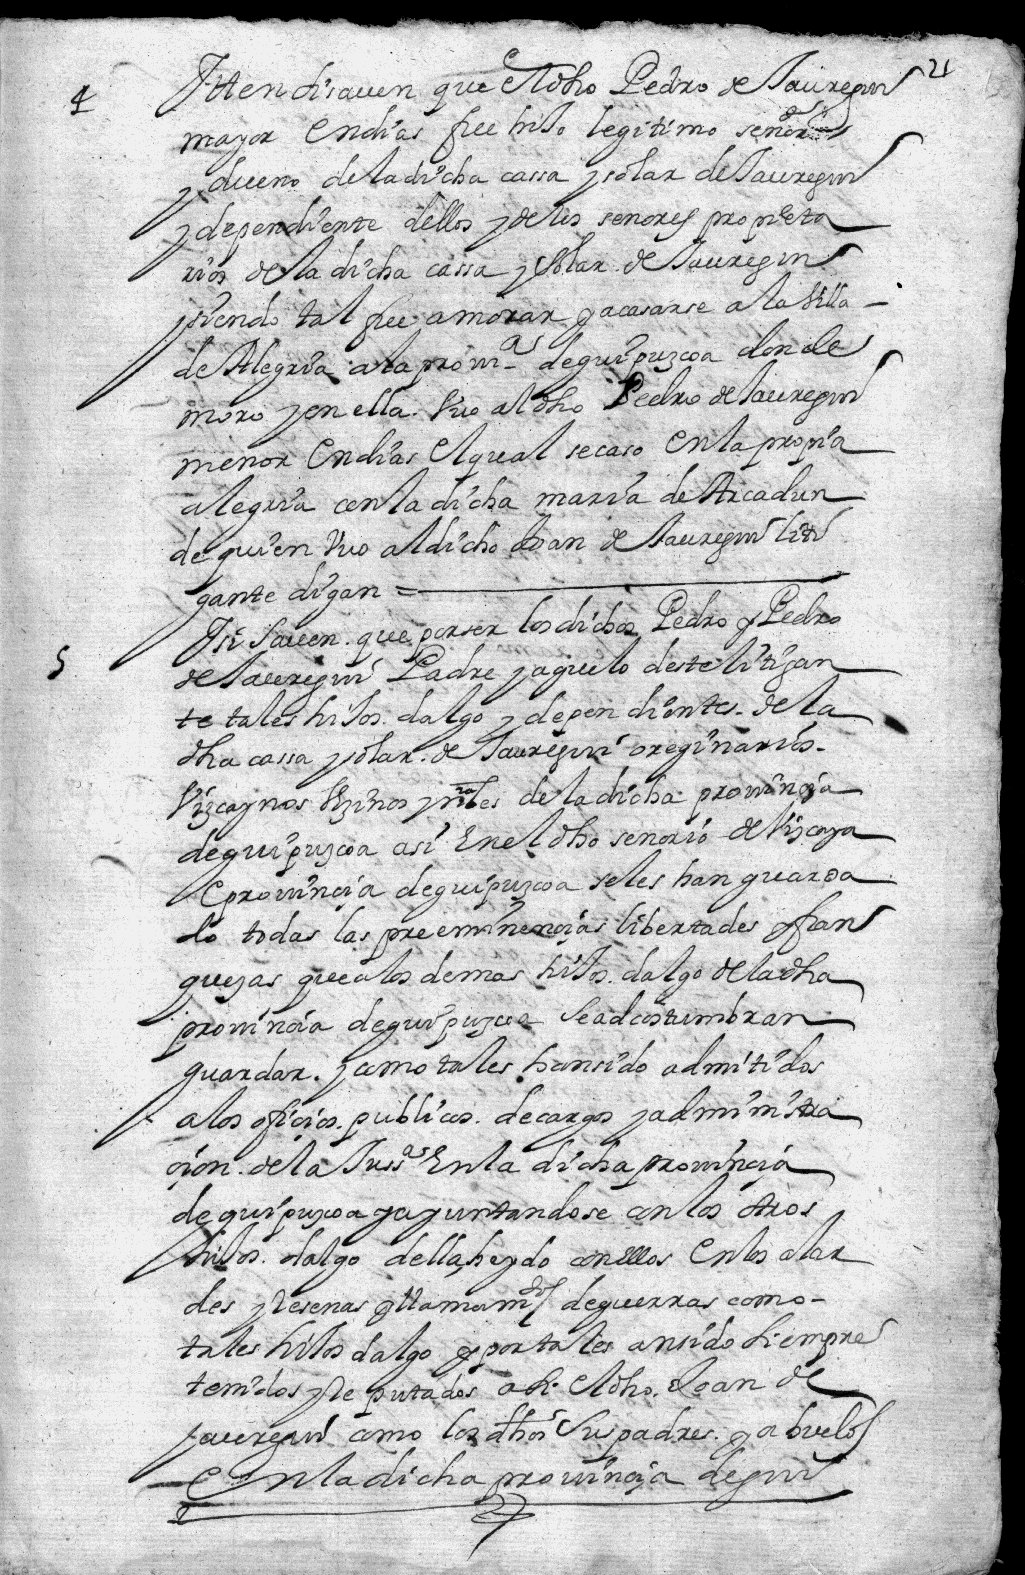 21
4 Itten si sauen que el dho Pedro de Jauregui
mayor en dias fue hijo legitimo señor
y dueno de la dicha cassa y solar de Jauregui
y dependiente dellos y de los senores propieta
rios de la dicha cassa y solar de Jauregui
y siendo tal fue a morar y a casarse a la Villa
de Alegria a la prouin.ª de guipuzcoa donde
moro y en ella Vuo al dho Pedro de Jauregui
menor en dias el qual se caso en la propia
alegria con la dicha maria de Arcadun
de quien Vuo al dicho Joan de Jauregui liti
gante digan =
5 Si sauen que por ser los dichos Pedro y Pedro
de Jauregui Padre y aguelo deste litigan
te tales hijos dalgo y dependientes de la
dha cassa y solar de Jauregui oreginarios
Vizcaynos Vezinos y nrāles de la dicha prouincia
de guipuzcoa asi En el dho senorio de Vizcaya
e prouincia de guipuzcoa se les han guarda
do todas las preeminencias libertades y fran
quezas que a los demas hijos dalgo de la dha
prouincia de guipuzcoa Se adcostumbran
guardar y como tales han sido admitidos
a los oficios publicos de cargos y administra
cion de la Juss.ª En la dicha prouincia
de guipuzcoa y ayuntandose con los otros
hijos dalgo della, he ydo con ellos en los alar
des y Resenas y llamam.tos de guerras como
tales hijos dalgo y por tales an sido siempre
tenidos y Reputados asi el dho Joan de
jauregui como los dhos Sus padres y abuelos
en la dicha prouincia de gui